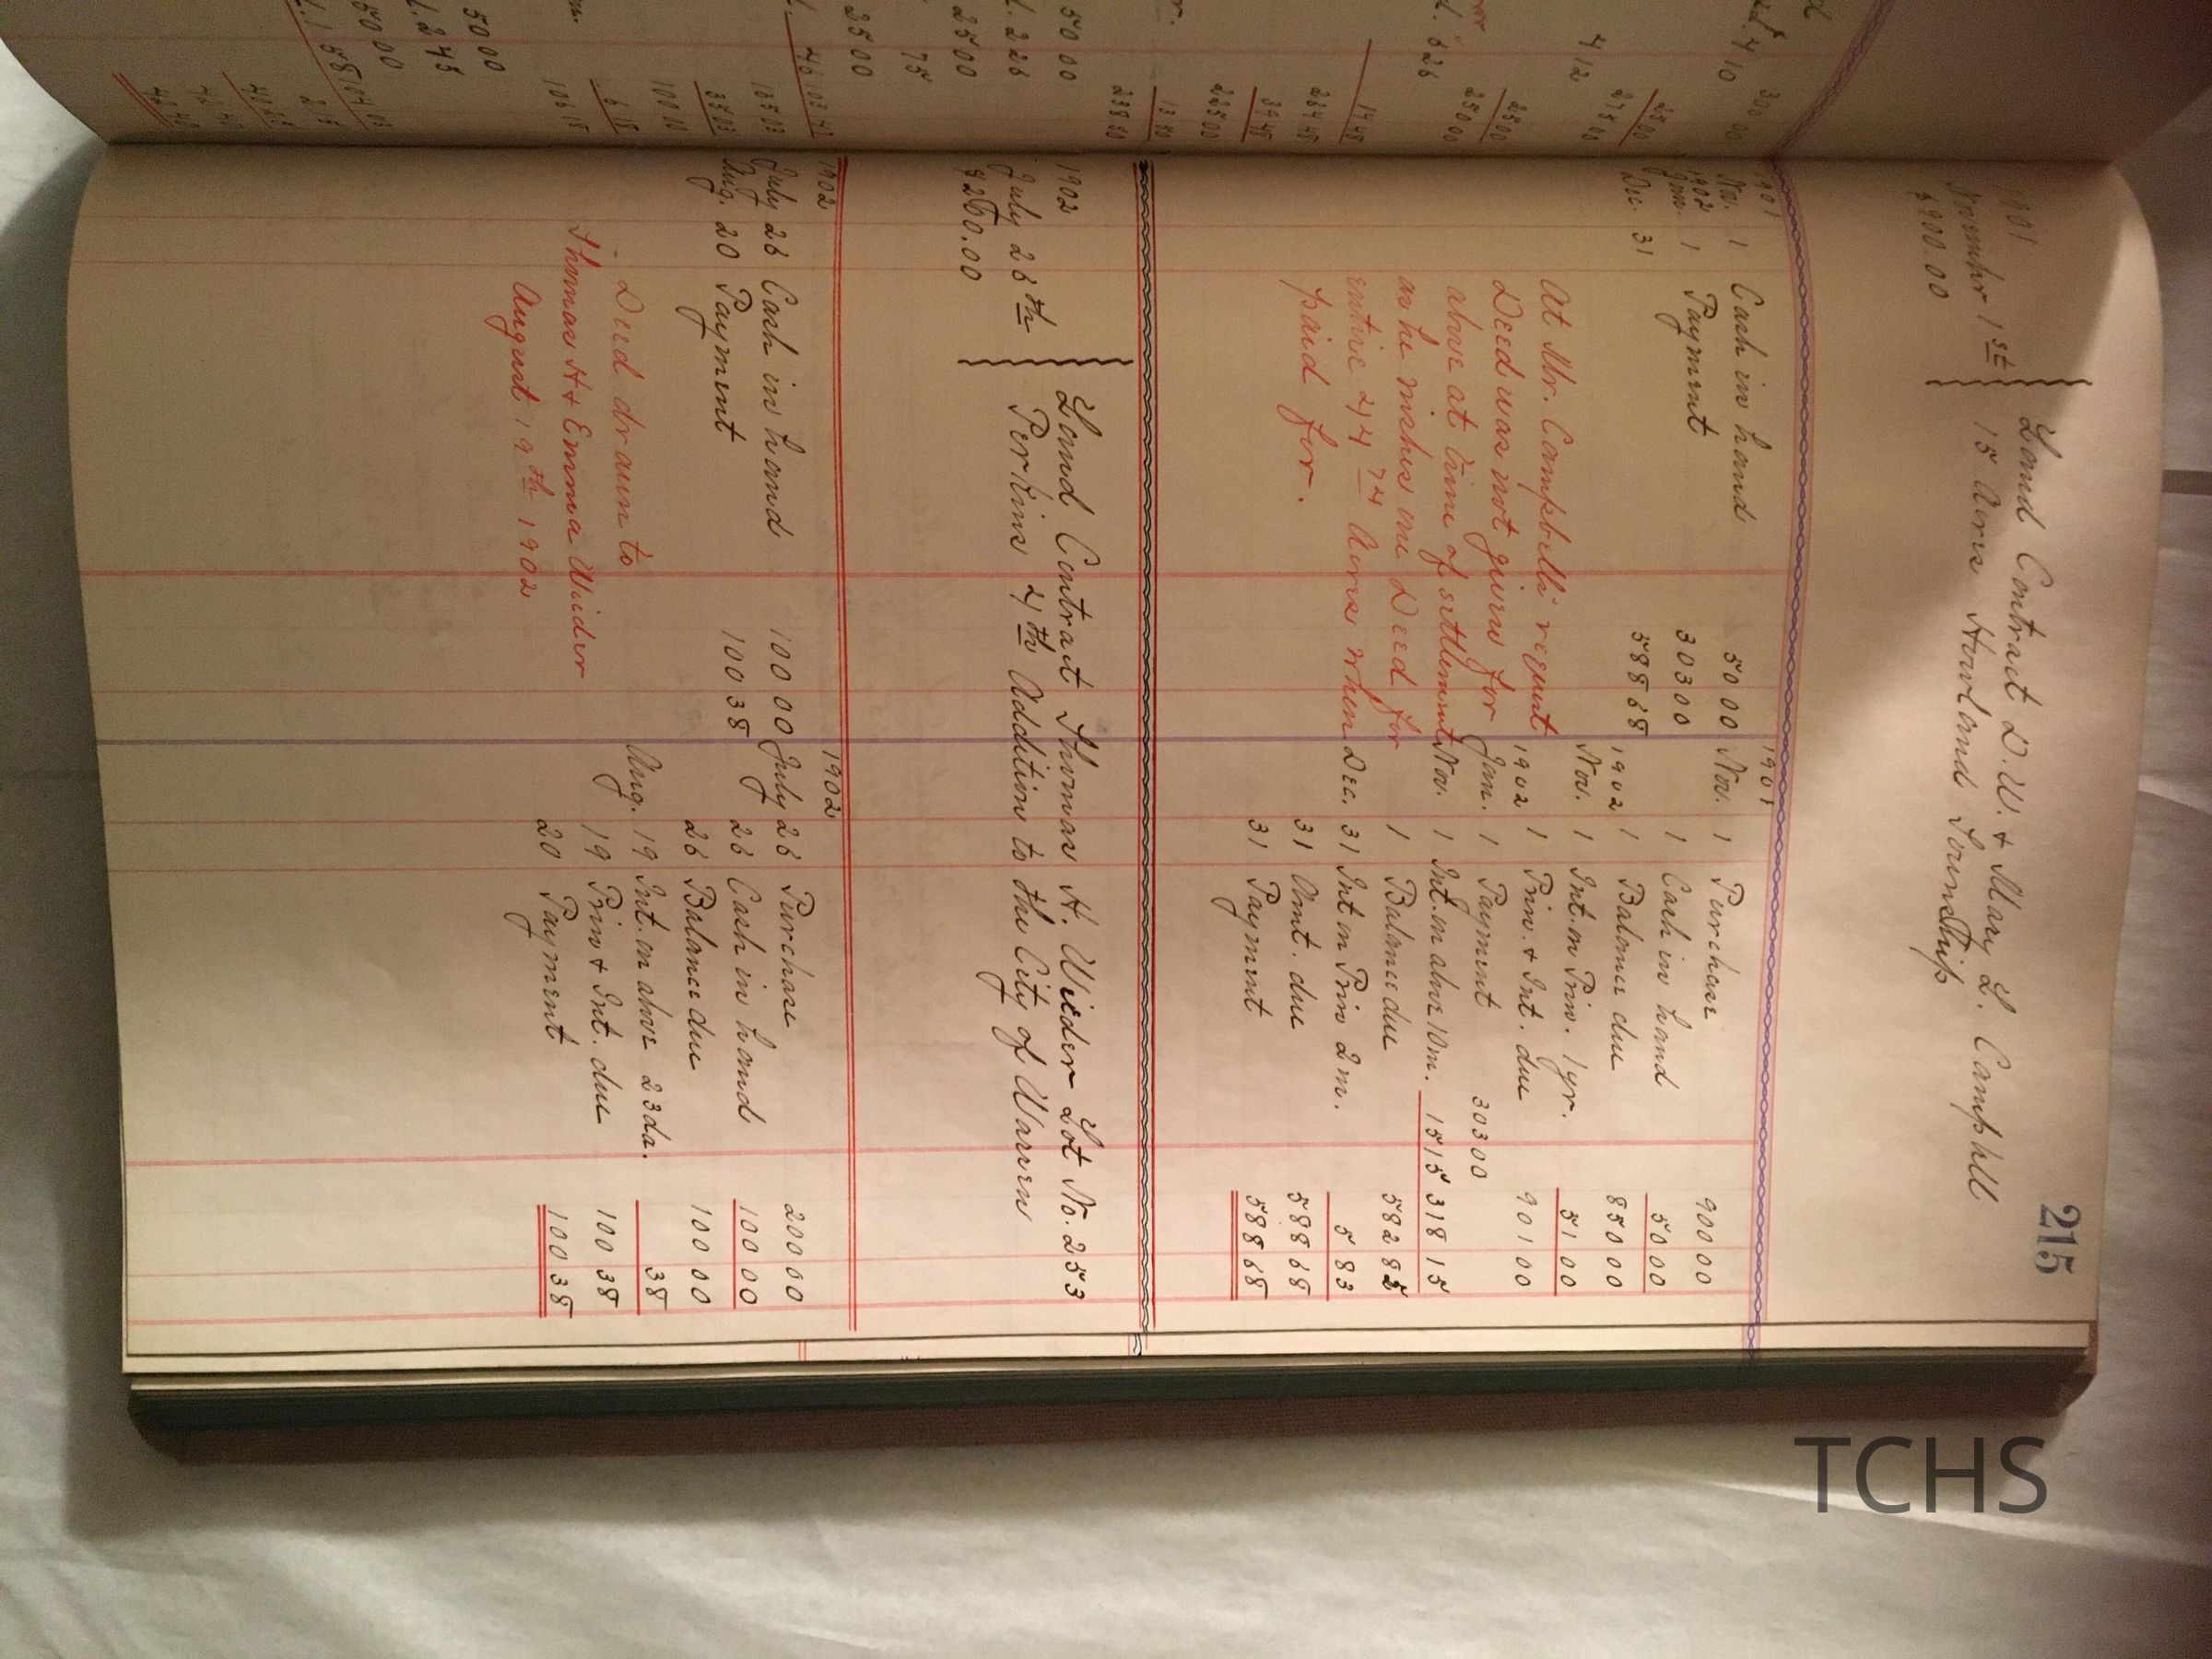 215
Land Contract D.W. & Mary L. Campbell
November 1st 15 Acres Howland Township
$900.00
1901
Nov. 1 Cash in hand 50 00
1902
Jan. 1 Payment 303 00
Dec. 31 588 68
At Mr. Campbells request
Deed was not given for
above at time of settlement
as he wishes one Deed for
entire 44 74 Acres when
paid for.
1901
Nov. 1 Purchase 900 00
1 Cash in hand 50 00
1 Balance due 850 00
1902
Nov. 1 Int. on Prin. 1 yr. 51 00
1 Prin. & Int. due 901 00
1902
Jan. 1 Payment 303 00
Nov. 1 Int. on above 10 m. 15 15 318 15
1 Balance due 582 85
Dec. 31 Int on Prin 2 m. 5 83
31 Amt. due 588 68
31 Payment 588 68
1902
July 26th Land Contract Thomas H. Wieder Lot No. 253
Perkins 4th Addition to the City of Warren
1902
July 26 Cash in hand 100 00
Aug. 20 Payment 100 38
Deed drawn to
Thomas H & Emma Wieder
August 19th 1902
1902
July 26 Purchase 200 00
26 Cash in hand 100 00
26 Balance due 100 00
Aug. 19 Int. on above 23 da. 38
19 Prin & Int. due 100 38
20 Payment 100 38
TCHS